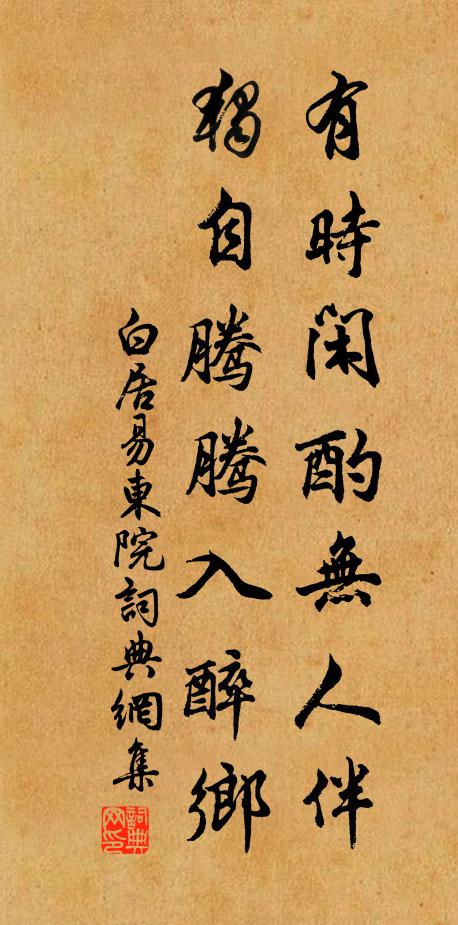 有時閑酌無人伴
獨自騰騰入醉鄉
白居易東院詞典網集
詞典网印